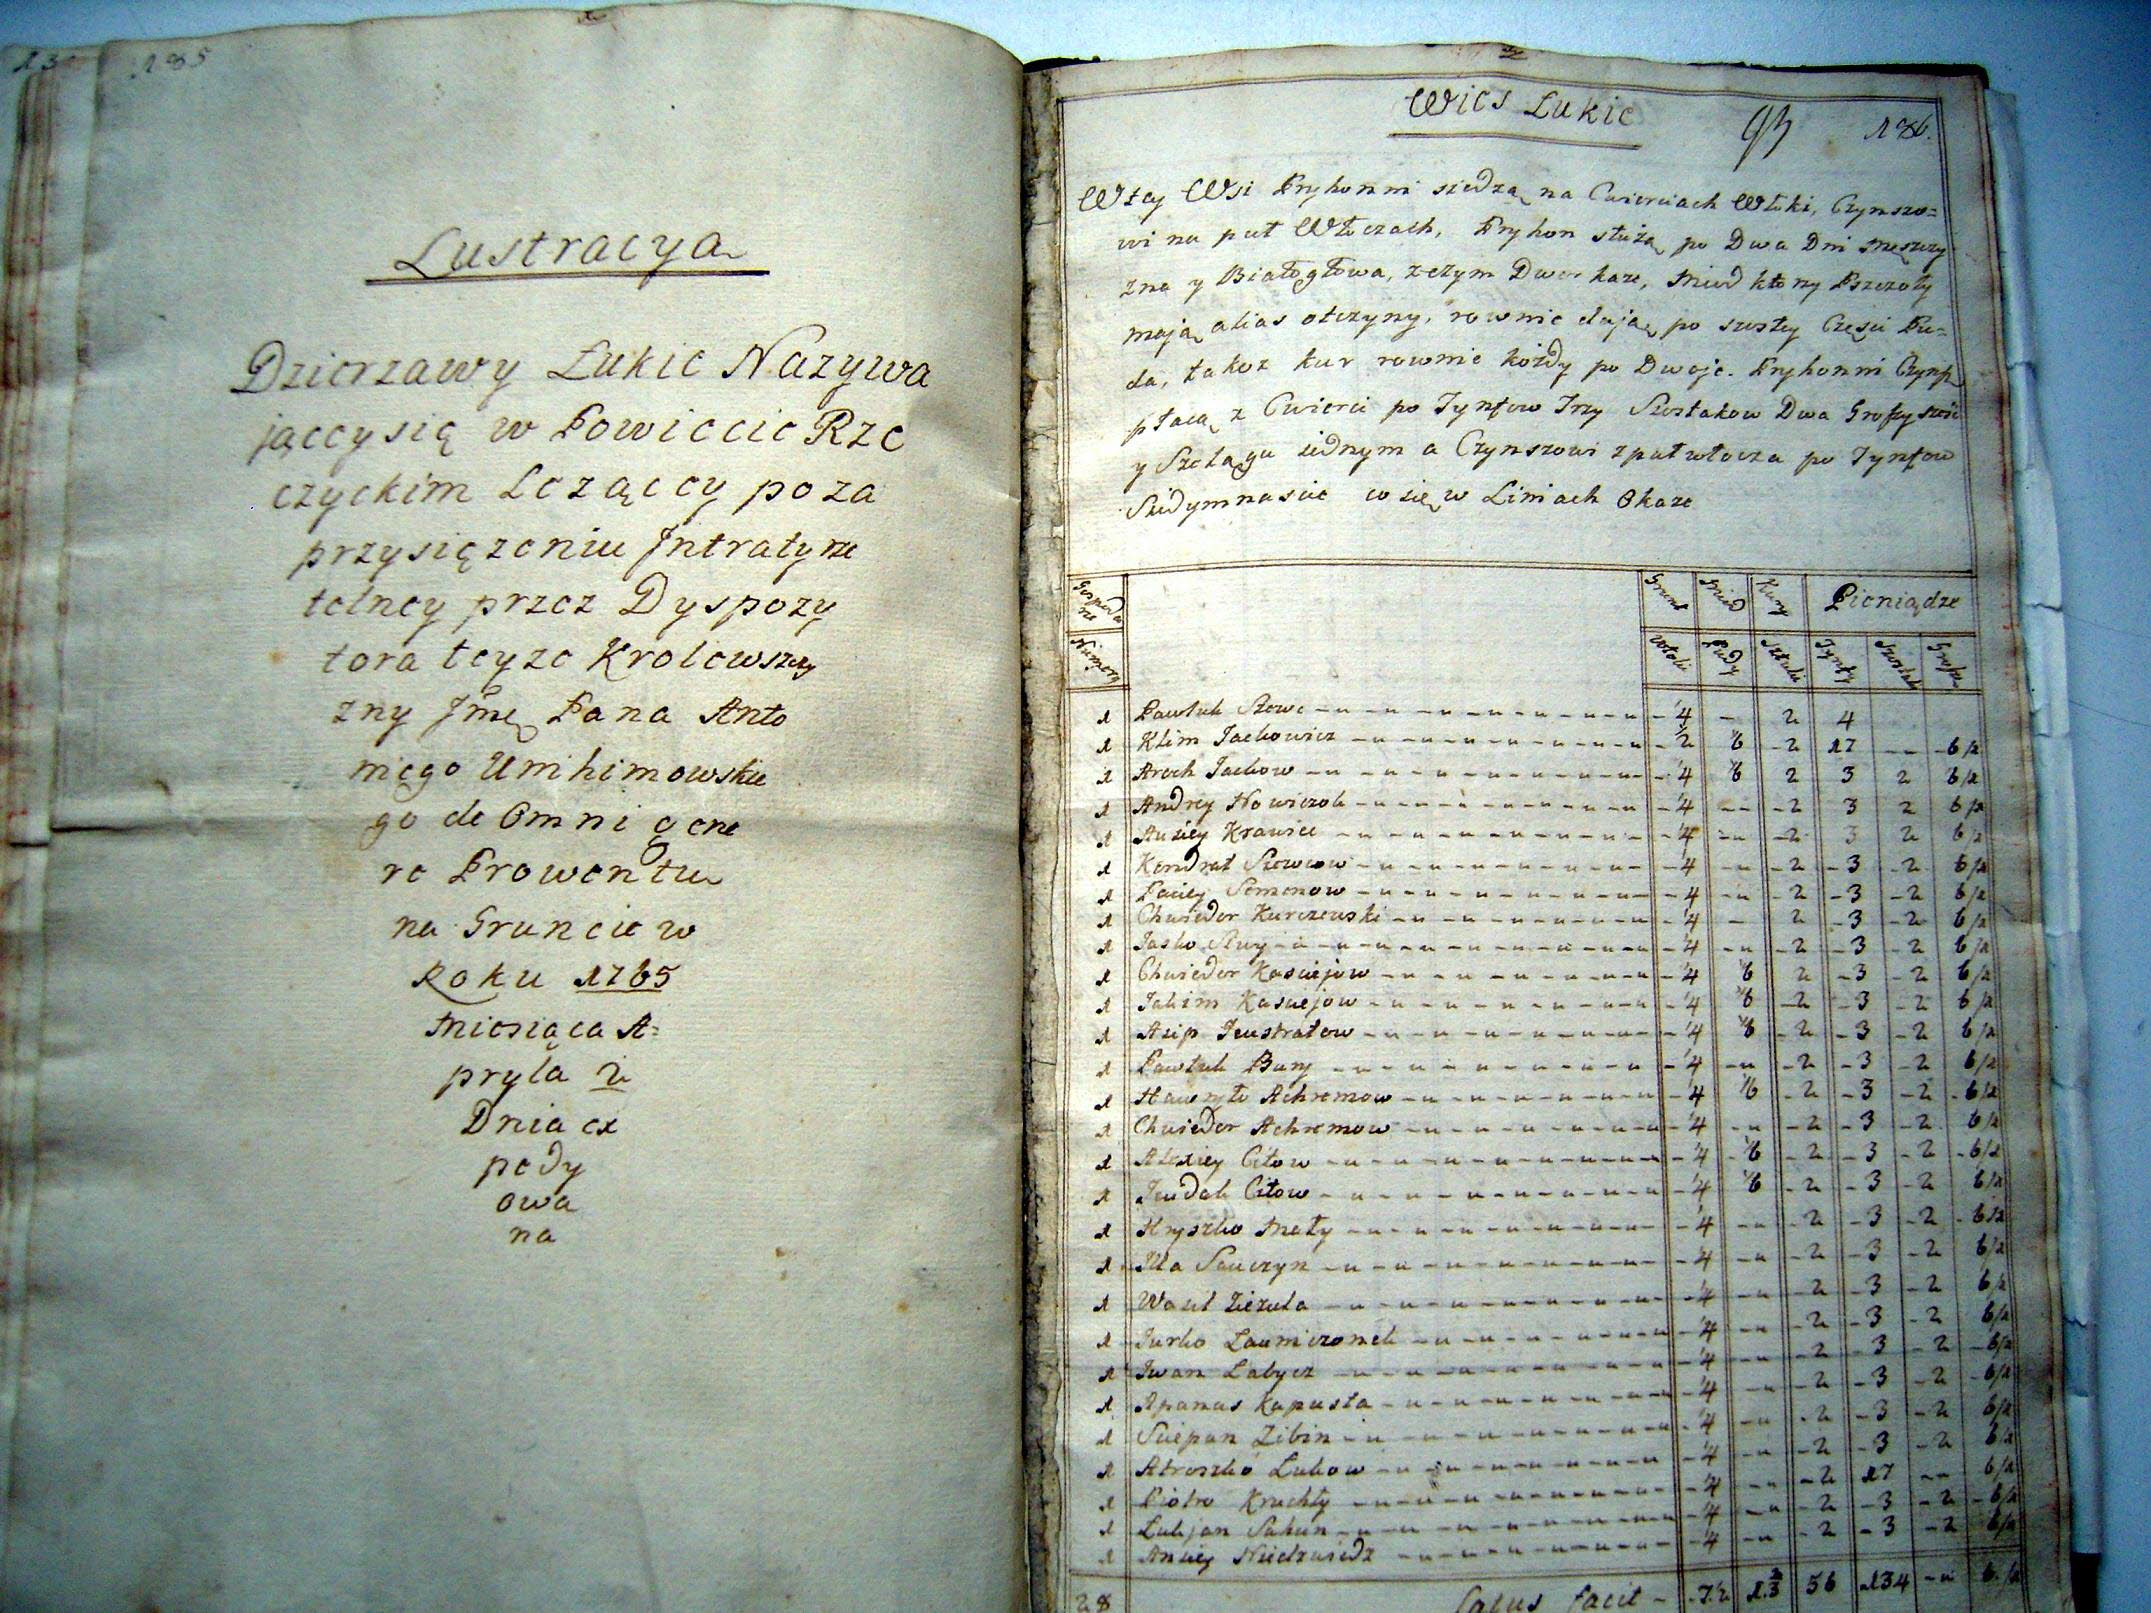 185
Lustracya
Dzierzawy Łukie Nazywa
jącey się w Powiecie Rze
czyckim Leząccy poza
przysięzeniu Intraty rze
telney przez Dyspozy
tora teyze Krolewszczy
zny Jmę Pana Anto
niego
go de Omni gene
re Prowentu
na Gruncie w
Roku 1765
Miesiąca A=
pryla 2
Dnia ex
pedy
owa
na
Wies Łukie
93 186.
Wtey Wsi Pryhonni siedzą na Cwierciach Włoki, Czynszo=
wi na puł Włoczach, Pryhon służą po Dwa Dni Męszczy
zna y Białogłowa, z czym Dwor kaze, Miod ktony Pszczoły
mają alias otczyny, rownie dają po szostey Częsci Pu=
da, takoz kur rownie kożdy po Dwoje. Pryhonni Czynsz
płacą z Cwierci po Tynfow Trzy Szostakow Dwa Groszy szesc
y Szelągu iednym a Czynszowi z pułwłocza po Tynfow
Siedymnascie co się w Liniach Okaze
Grunt Miod Kury Pieniądze
Numera Włoki Pudy Sztuki Tynfy Szostaki Grosze
1 Pawluk Szewc 1/4 2 4
1 Klim Jackowicz 1/2 1/6 2 17 6/1
1 Aroch Jackow 1/4 1/6 2 3 2 6/1
1 Andrey Nowiczok 1/4 2 3 2 6/1
1 Auxiey Krawiec 1/4 2 3 2 6/1
1 Kondrat Szewcow 1/4 2 3 2 6/1
1 Paciey Semenow 1/4 2 3 2 6/1
1 Chwiedor Kurczewski 1/4 2 3 2 6/1
1 Jasko 1/4 2 3 2 6/1
1 Chwiedor Kasciejow 1/4 1/6 2 3 2 6/1
1 Jakim Kasciejow 1/4 1/6 2 3 2 6/1
1 Asip Jeustratow 1/4 1/6 2 3 2 6/1
1 Pawluk Bury 1/4 2 3 2 6/1
1 Hawryło Achremow 1/4 1/6 2 3 2 6/1
1 Chwiedor Achremow 1/4 2 3 2 6/1
1 Alexiey Citow 1/4 1/6 2 3 2 6/1
1 Jeudok Citow 1/4 1/6 2 3 2 6/1
1 Hryszko Mały 1/4 2 3 2 6/1
1 Illa Sawczyn 1/4 2 3 2 6/1
1 Wasil Ziezula 1/4 2 3 2 6/1
1 Jurko Launiczonek 1/4 2 3 2 6/1
1 Iwan Labycz 1/4 2 3 2 6/1
1 Apanas Kapusta 1/4 2 3 2 6/1
1 Sciepan Zibin 1/4 2 3 2 6/1
1 Atroszko Lukow 1/4 2 17 6/1
1 Piotro Kruchły 1/4 2 3 2 6/1
1 Łukjan Sakun 1/4 2 3 2 6/1
1 Anciey Niedzwiedz 1/4
28 Latus facit 7 1/2 1 2/3 56 134 6/1